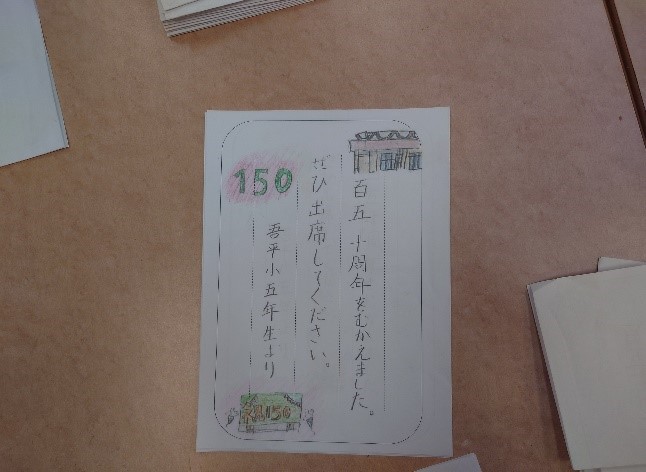 百五十周年をむかえました。
ぜひ出席してください。
150
吾平小五年生より
祝150